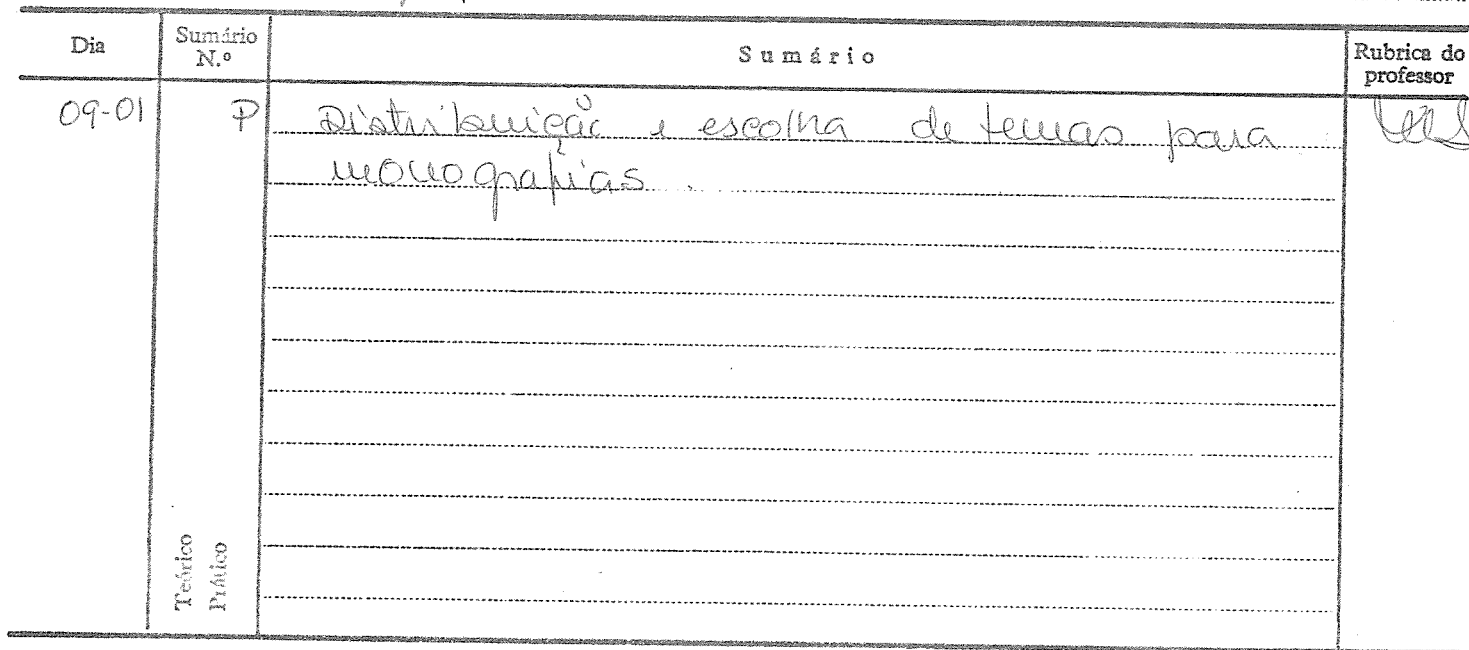 Dia Sumário N.º Sumário Rubrica do professor
09-01 P Distribuição e escolha de temas para
monografias.
Teórico
Prático